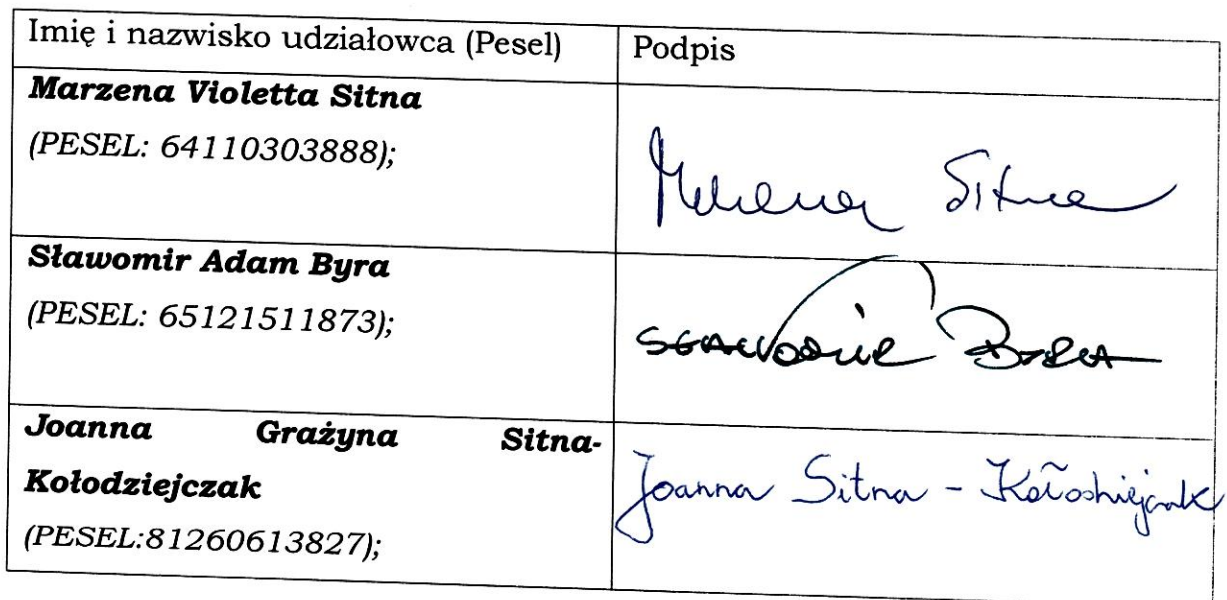 Imię i nazwisko udziałowca (Pesel)
Podpis
Marzena Violetta Sitna
(PESEL: 64110303888);
Marzena Sitna
Sławomir Adam Byra
(PESEL: 65121511873);
SŁAWOMIR BYRA
Joanna Grażyna Sitna-
Kołodziejczak
(PESEL:81260613827);
Joanna Sitna - Kołodziejczak